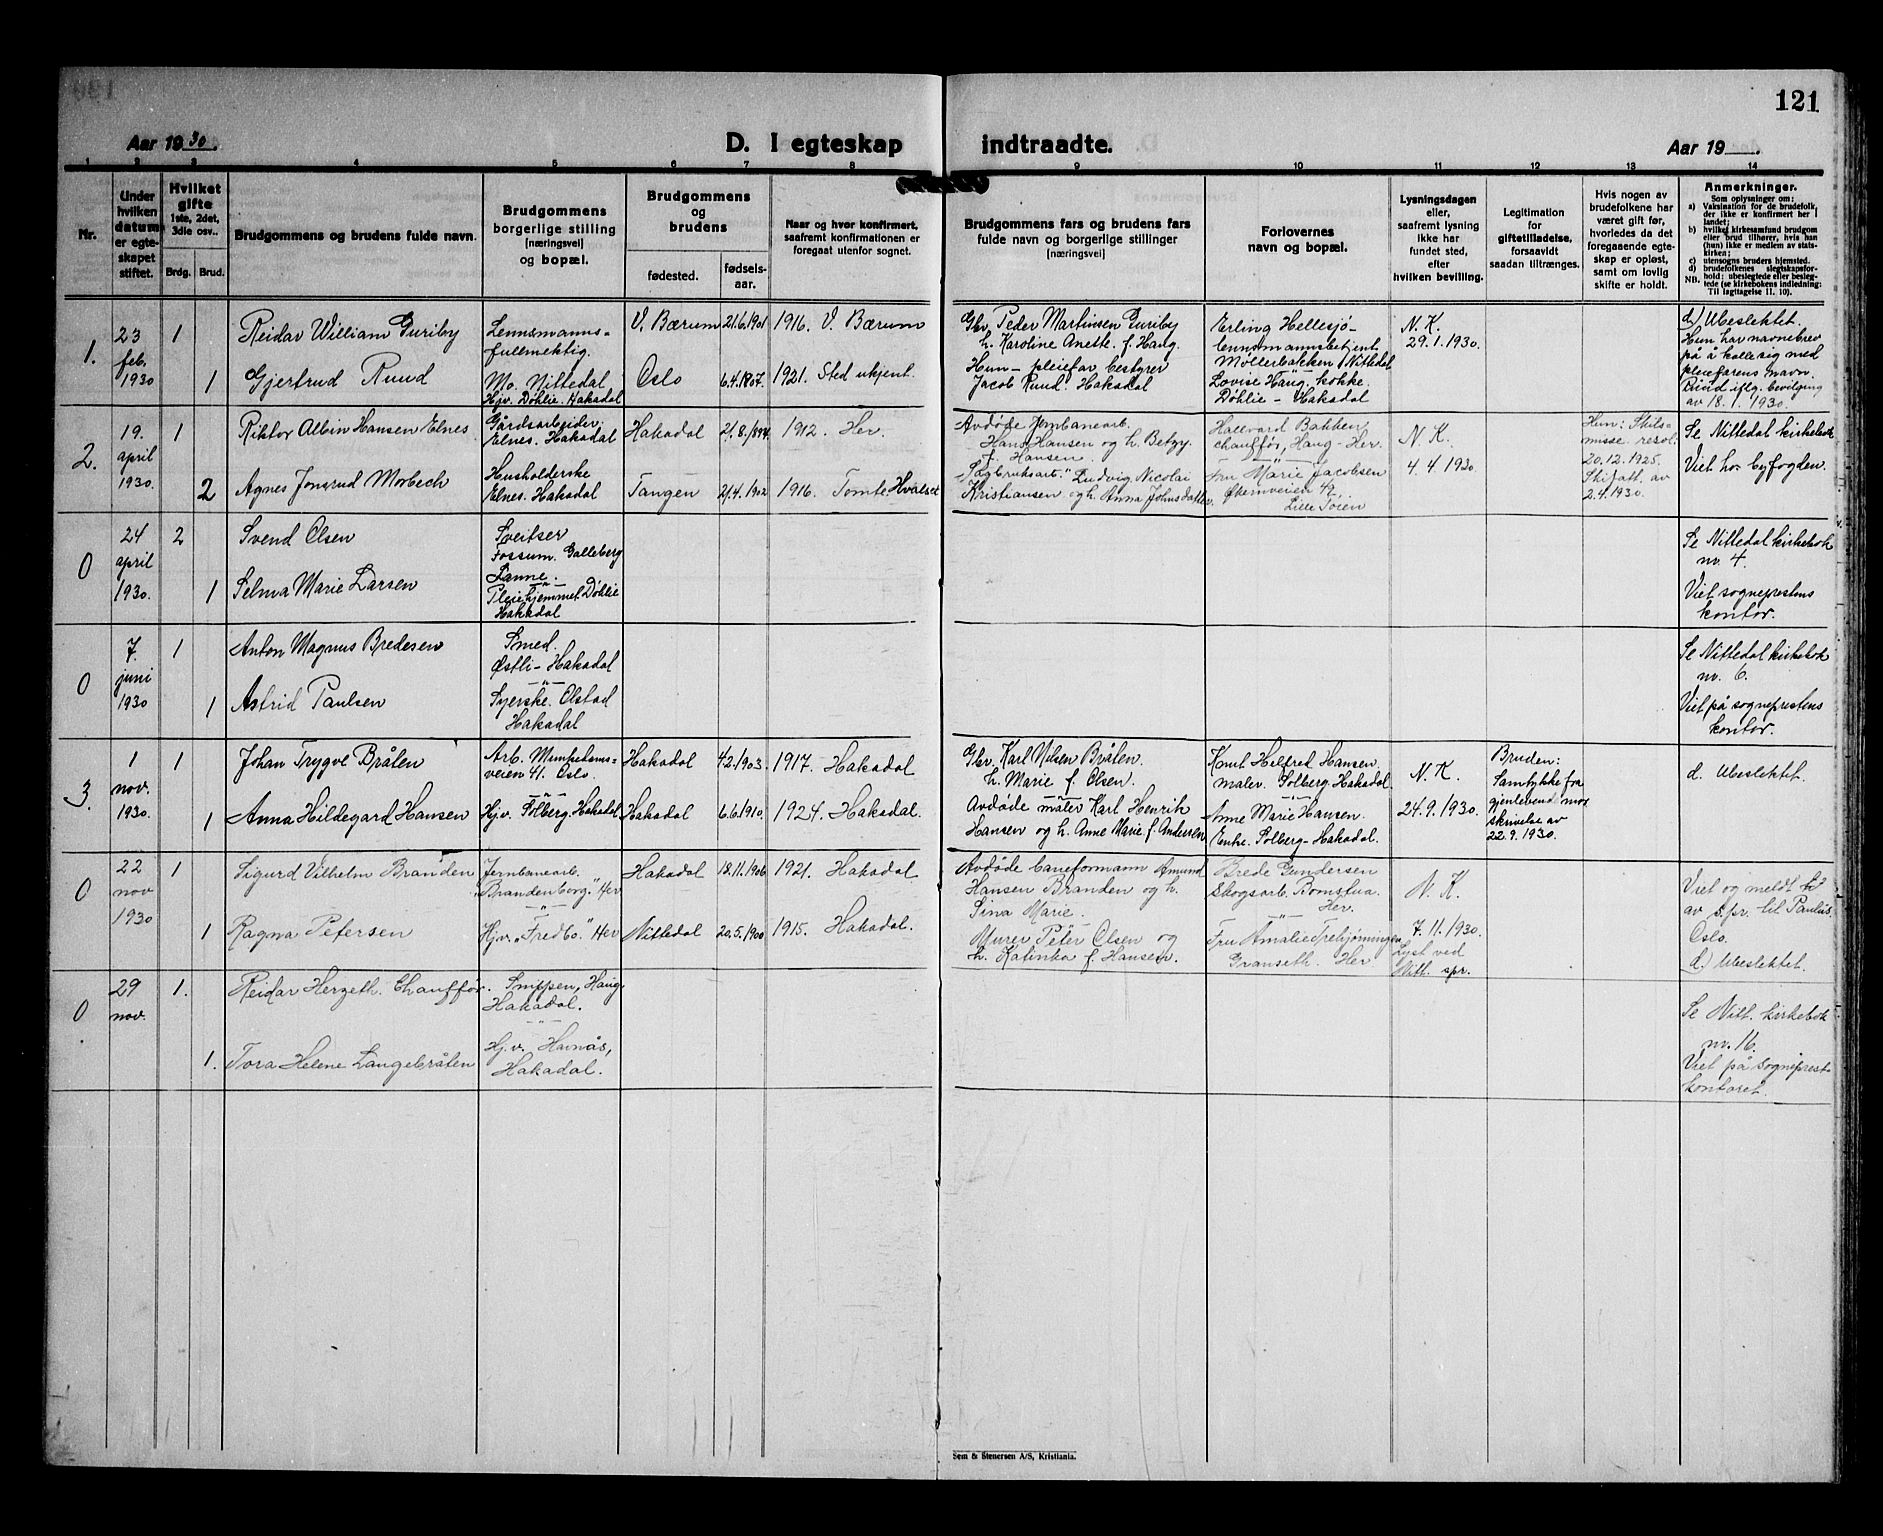 121
Aar 1930.
D. I egteskap indtraadte.
Aar 19
1 2 3 4 5 6 7 8 9 10 11 12 13 14
Nr.
Under
hvilken
datum
er egte-
skapet
stiftet.
Hvilket
gifte
1ste, 2det,
3die osv..
Brdg. Brud.
Brudgommens og brudens fulde navn.
Brudgommens
borgerlige stilling
[næringsvei]
og bopæl.
Brudgommens
og
brudens
fødested.
fødsels-
aar.
Naar og hvor konfirmert,
saafremt konfirmationen er
foregaat utenfor sognet.
Brudgommens fars og brudens fars
fulde navn og borgerlige stillinger
[næringsvei]
Forlovernes
navn og bopæl.
Lysningsdagen
eller,
saafremt lysning
ikke har
fundet sted,
efter
hvilken bevilling.
Legitimation
for
giftetilladelse,
forsaavidt
saadan tiltrænges.
Hvis nogen av
brudefolkene har
været gift før,
hvorledes da det
foregaaende egte-
skap er opløst,
samt om lovlig
skifte er holdt.
Anmerkninger.
Som oplysninger om:
a) Vaksination for de brudefolk,
der ikke er konfirmert her i
landet;
b) hvilket kirkesamfund brudgom
eller brud tilhører, hvis han
(hun) ikke er medlem av stats-
kirken;
c) utensogns bruders hjemsted.
d) brudefolkenes slegtskapsfor-
hold: ubeslegtede eller besleg-
tede (se kirkebokens indledning:
NB. Til iagttagelse II. 10).
1.
23
feb.
1930
1
1
Reidar William Guriby
Gjertrud Ruud
Lensmanns-
fullmektig.
Mo. Nittedal
Hjv. Døhlie. Hakadal
V. Bærum 21.6.1901 1916. V. Bærum
Oslo 6.4.1907. 1921. Sted ukjent.
Gbr. Peder Martinsen Guriby
h. Karoline Anette f. Haug.
Hun - pleiefar bestyrer
Jacob Ruud. Hakadal
Erling Hellesjø-
lensmannsbetjent
Møllerbakken Nittedal
Lovise Haug - kokke.
Døhlie - Hakadal
N. K.
29.1.1930.
d) Ubeslektet.
Hun har navnebrev
på å kalle sig med
pleiefarens navn.
Ruud iflg. bevilging
av 18.1.1930.
2.
19.
april
1930.
1
2
Riktor Albin Hansen Elnes
Agnes Jonsrud Morbech
Gårdsarbeider
Elnes. Hakadal
Husholderske
Elnes. Hakadal
Hakadal 21.8.1894 1912. Her.
Tangen 21.4.1902 1916. Tomte Hvalset
Avdøde Jernbanearb.
Hans Hansen og h. Betzy.
f. Hansen
"Sagbruksarb." Ludvig Nicolai
Kristiansen og h. Anna Johnsdatter.
Hallvard Bakken
chauffør, Haug - Her.
Fru Marie Jacobsen
Økernveien 49
Lille Tøien
N. K.
4.4.1930.
Hun: Skils-
misse resol.
20.12.1925.
Skifatt. av
2.4.1930.
Se Nittedal kirkebok
Viet hos byfogden.
0
24
april
1930.
2
1
Svend Olsen
Selma Marie Larsen
Sveitser
Fossum. Galleberg
Sanne.
Pleiehjemmet Døhlie
Hakadal
Se Nittedal kirkebok
nr. 4.
Viet sogneprestens
kontor.
0
7.
juni
1930
1
1
Anton Magnus Bredesen
Astrid Paulsen
Smed.
Østli - Hakadal
Syerske. Olstad
Hakadal
Se Nittedal kirkebok
nr. 6.
Viet på sogneprestens
kontor.
3.
1
nov.
1930.
1
1
Johan Trygve Bråten
Anna Hildegard Hansen
Arb. Munkedams-
veien 41. Oslo.
Hjv. Solberg. Hakadal.
Hakadal 4.2.1903. 1917. Hakadal
Hakadal 6.6.1910. 1924. Hakadal.
Gbr. Karl Nilsen Bråten
h. Marie f. Olsen.
Avdøde maler Karl Henrik
Hansen og h. Anne Marie f. Andersen
Knut Helfred Hansen
maler. Solberg. Hakadal.
Anne Marie Hansen.
Enke. Solberg - Hakadal.
N. K.
24.9.1930.
Bruden:
Samtykke fra
gjenlevende mor
skrivelse av
22.9.1930.
d. Ubeslektet.
0
22
nov
1930
1
1
Sigurd Vilhelm Branden
Ragna Petersen
Jernbanearb.
"Brandenborg." Her
Hjv. "Fredbo". Her
Hakadal 18.11.1906 1921. Hakadal
Nittedal 20.5.1900 1915. Hakadal.
Avdøde baneformann Amund
Hansen Branden og h.
Sina Marie.
Murer Peter Olsen og
h. Katinka f. Hansen.
Brede Gundersen
Skogsarb. Bomstua
Her.
Fru Amalie Trehjørningen
Granseth. Her
N. K.
7.11.1930.
Lyst ved
Nitt. spr.
Viet og meldt
av s.pr. til Paulus.
Oslo.
d.) Ubeslektet.
0
29
nov.
1.
1.
Reidar Herzeth. Chauffør.
Tora Helene Langebråten
Smppen, Haug.
Hakadal.
Hj.v. Harnås,
Hakadal.
Se Nitt. kirkebok
nr. 16.
Viet på sogneprest-
kontoret.
Sem & Stenersen A/S, Kristiania.